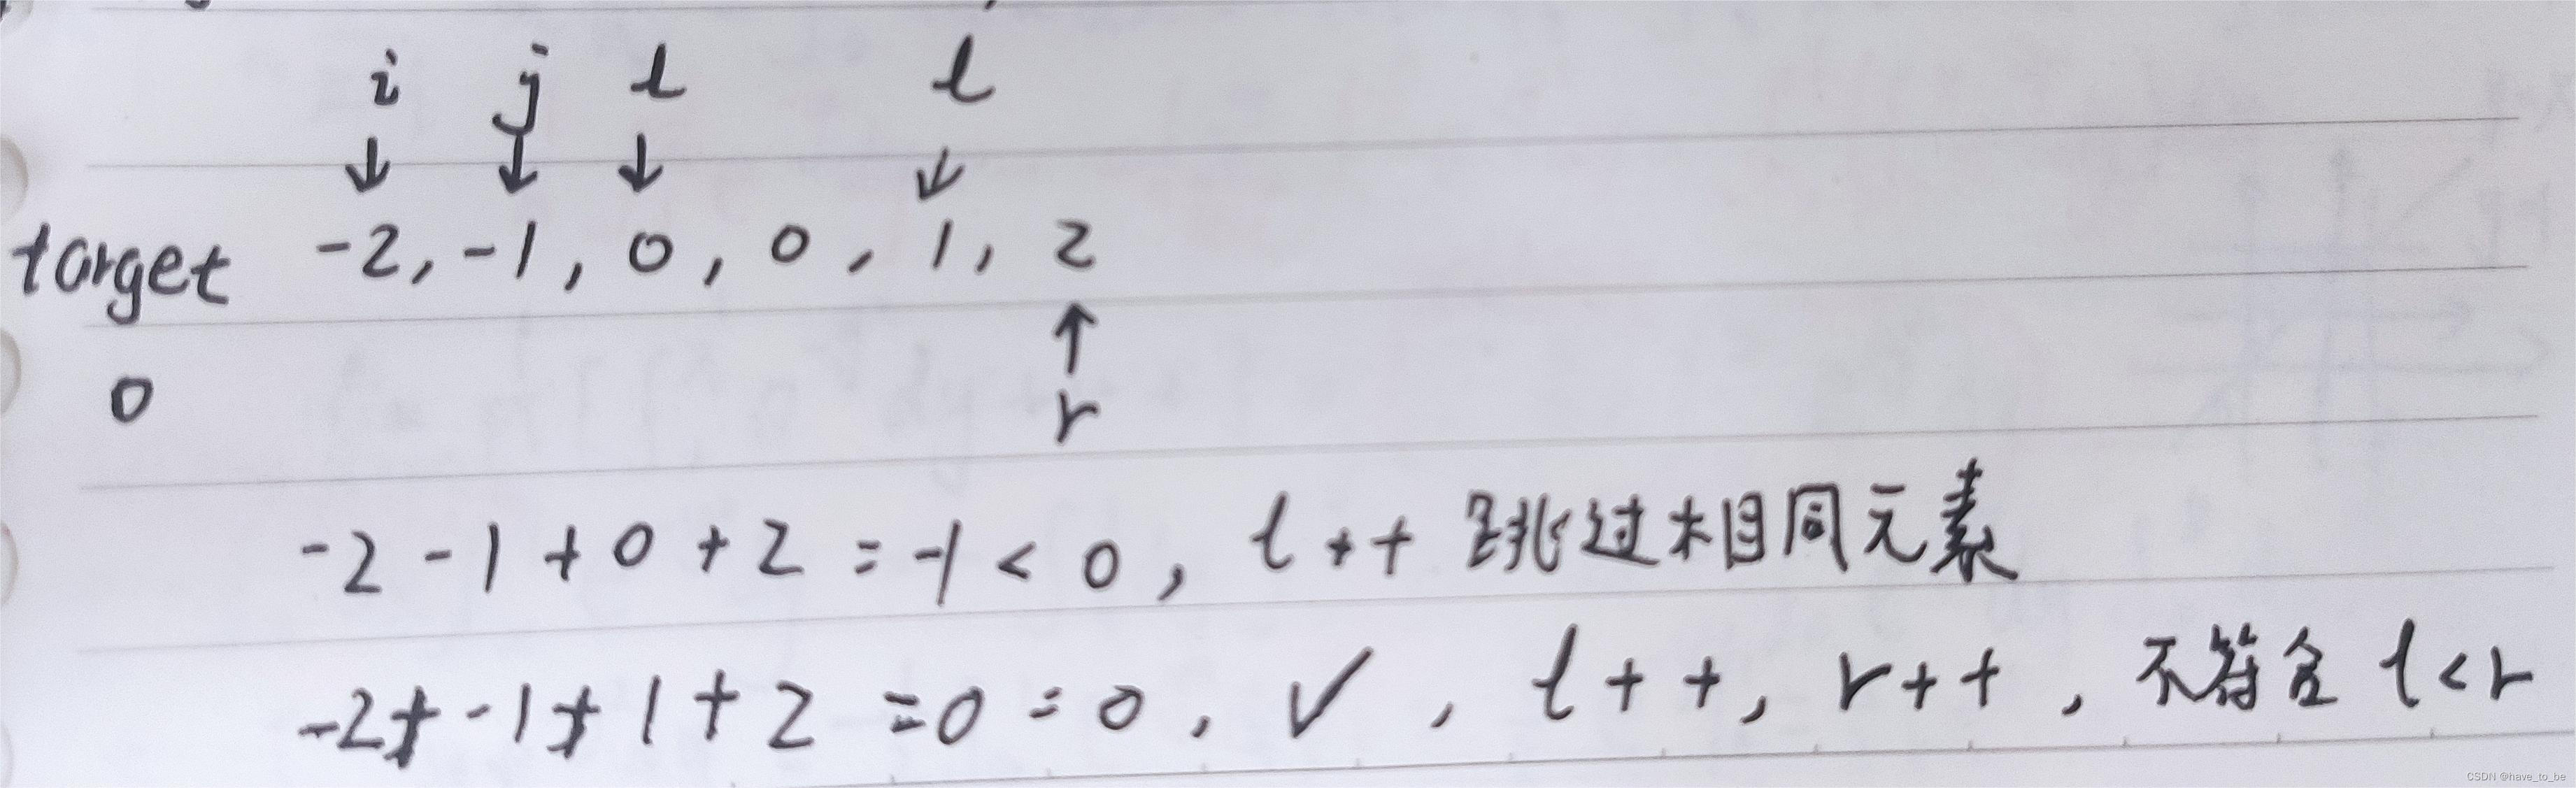 i j l l
↓ ↓ ↓ ↓
target -2, -1, 0, 0, 1, 2
↑
0 r
-2 - 1 + 0 + 2 = -1 < 0, l++ 跳过相同元素
-2 + -1 + 1 + 2 = 0 = 0, ✓, l++, r++, 不符合 l<r
CSDN @have_to_be